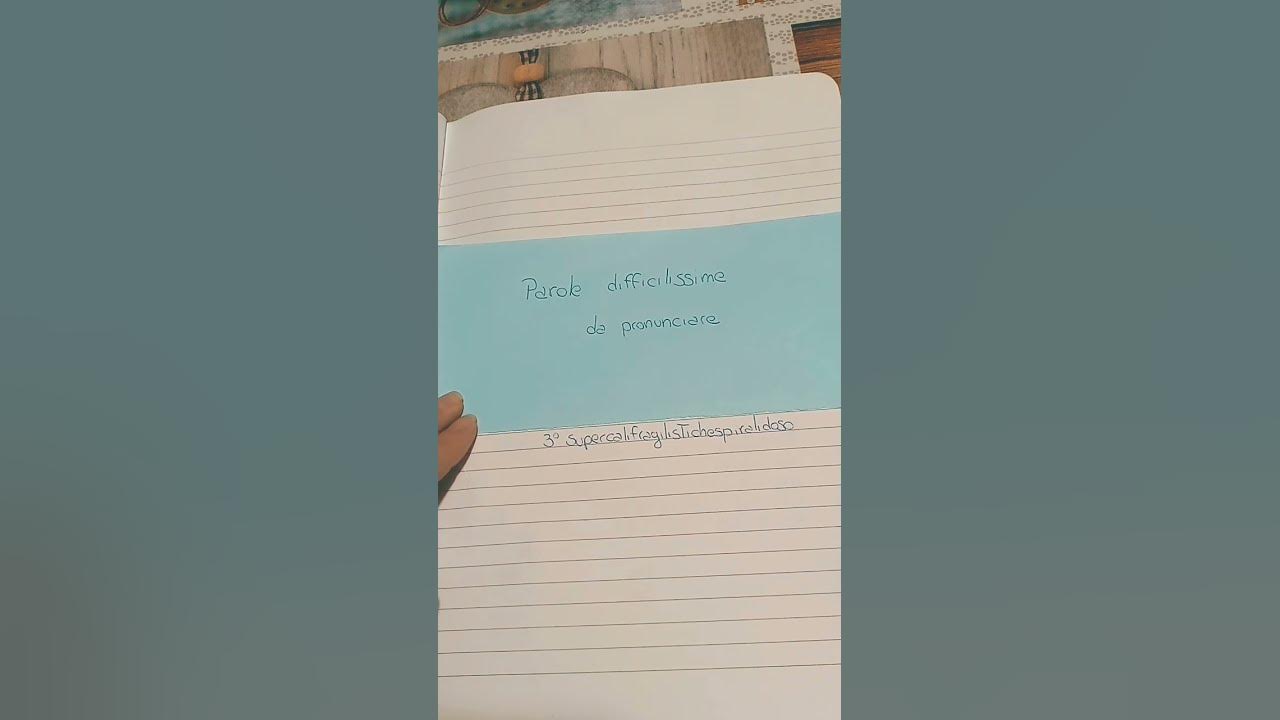 Parole difficilissime
da pronunciare
3° supercalifragilistichespiralidoso